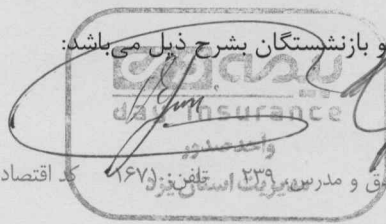 و بازنشستگان بشرح ذیل می‌باشد:
بیمه دی
day insurance
واحد صدور
مدیریت استان یزد
ق و مدرس، ۲۳۹ تلفن: ۱۶۷۱ کد اقتصاد